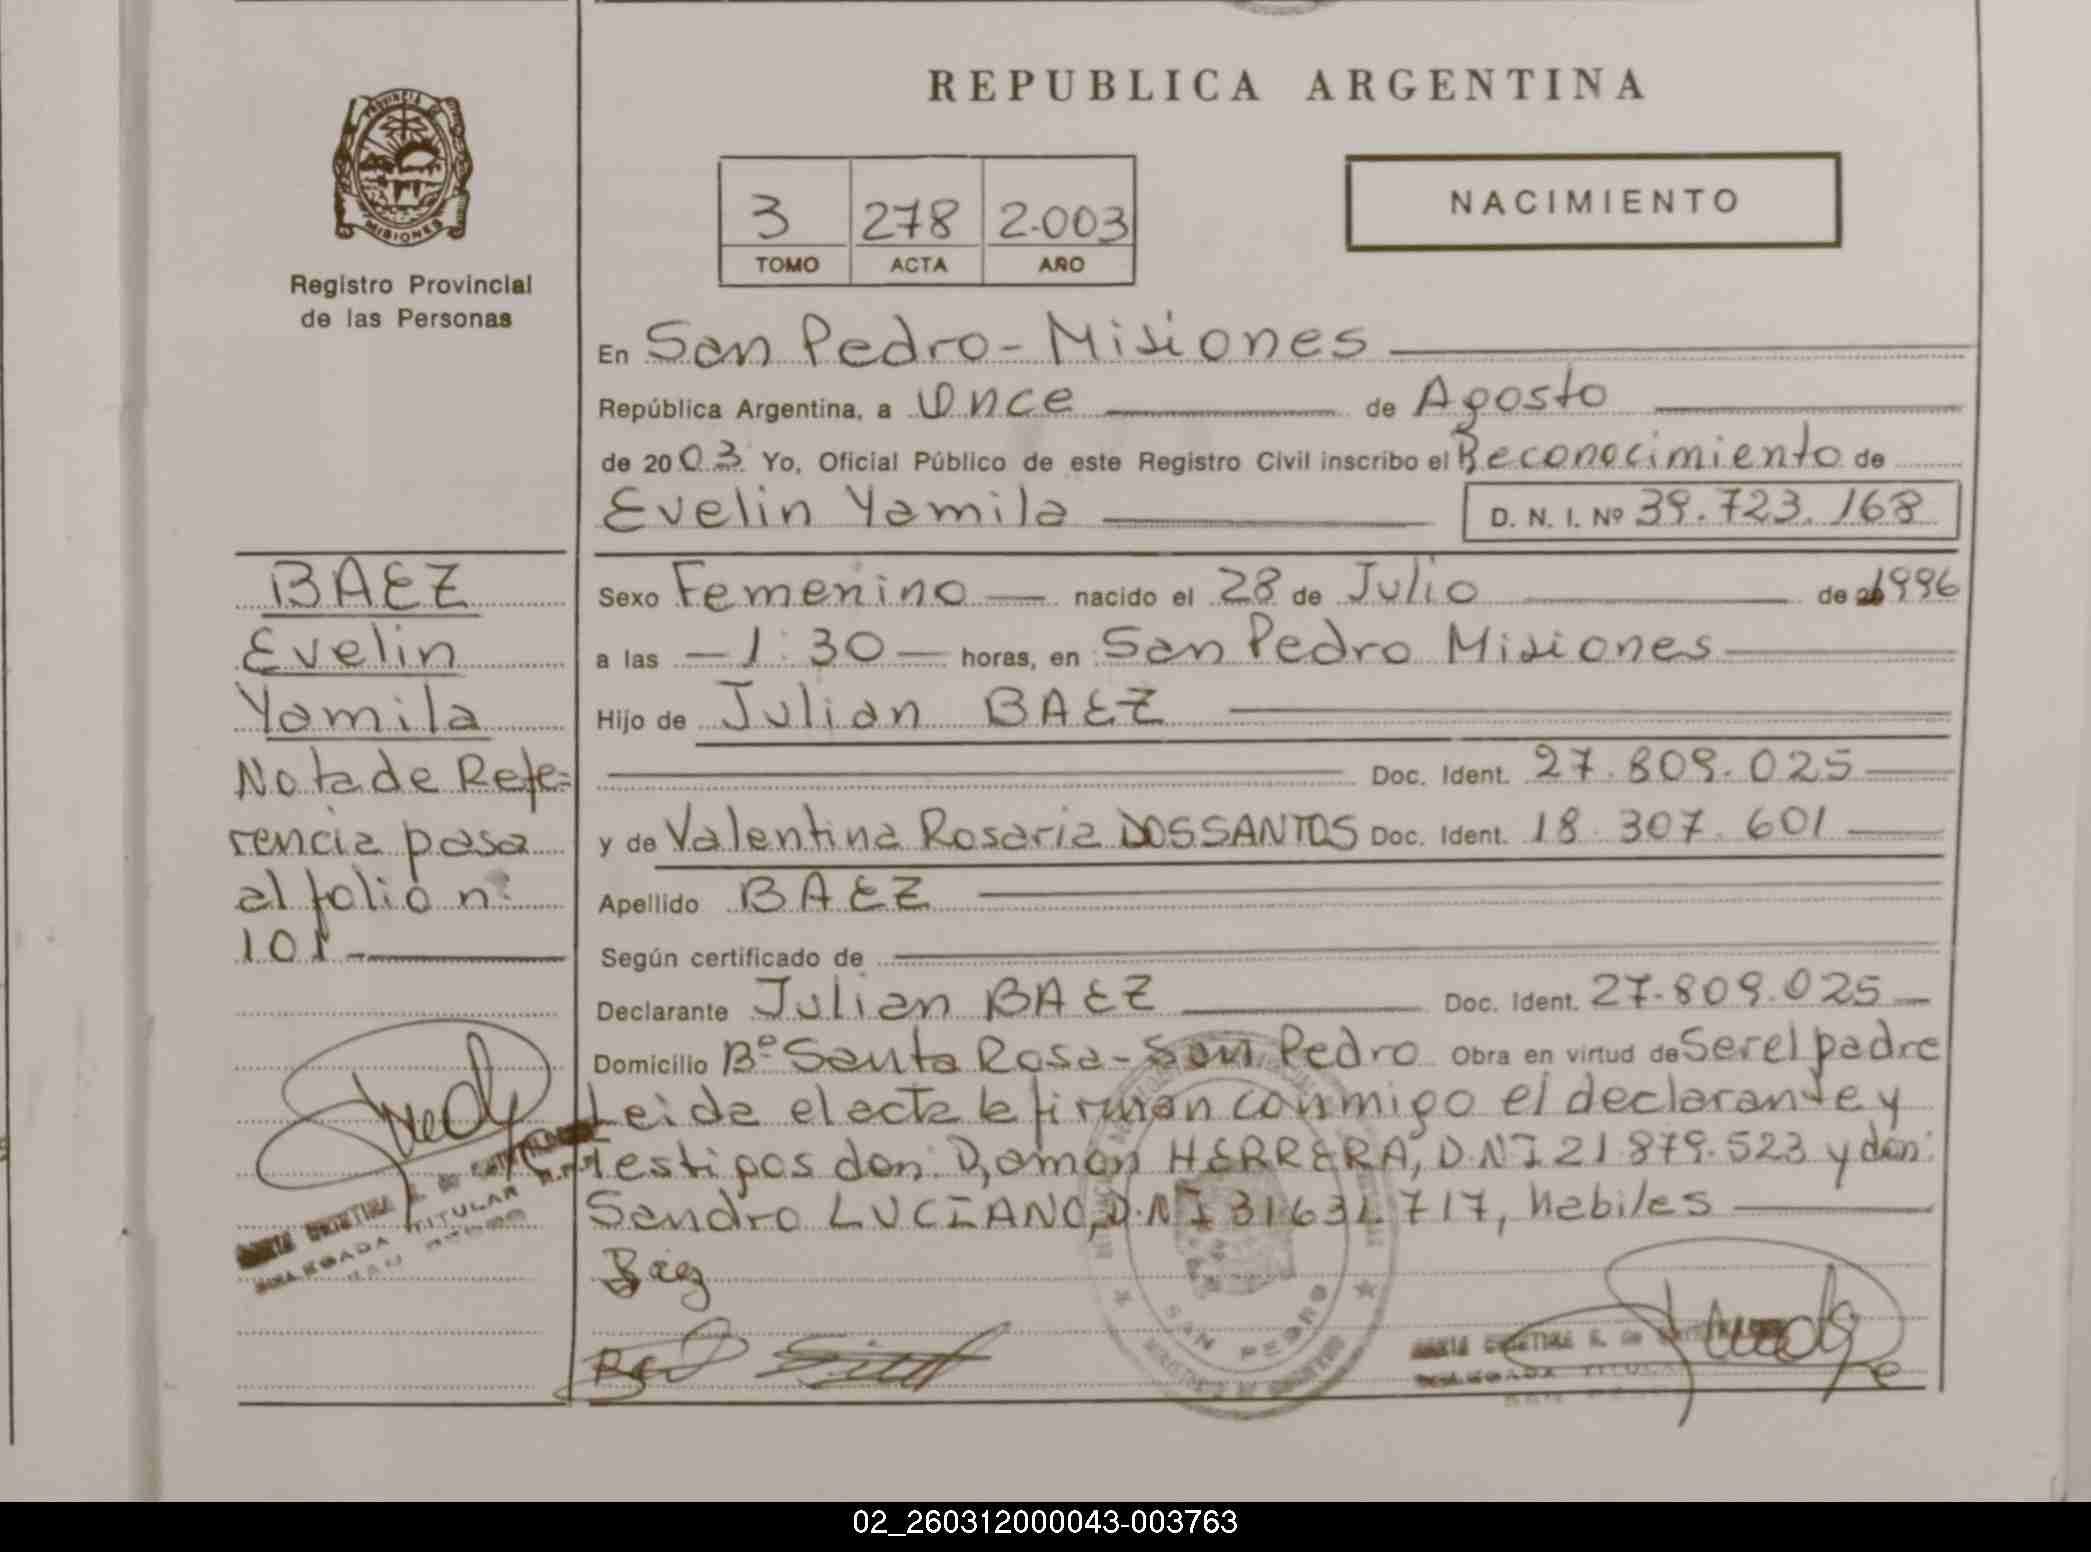 REPUBLICA ARGENTINA
PROVINCIA DE
MISIONES
Registro Provincial
de las Personas
3 278 2.003
TOMO ACTA AÑO
NACIMIENTO
En San Pedro - Misiones
República Argentina, a Once de Agosto
de 2003 Yo, Oficial Público de este Registro Civil inscribo el Reconocimiento de
Evelin Yamila D. N. I. Nº 39.723.168
BAEZ
Evelin
Yamila
Nota de Refe=
rencia pasa
al folio n:
101
Sexo Femenino nacido el 28 de Julio de 1996
a las - 1:30 - horas, en San Pedro Misiones
Hijo de Julian BAEZ
Doc. Ident. 27.809.025
y de Valentina Rosaria DOSSANTOS Doc. Ident. 18.307.601
Apellido BAEZ
Según certificado de
Declarante Julian BAEZ Doc. Ident. 27.809.025
Domicilio Bº Santa Rosa - San Pedro Obra en virtud de Ser el padre
Leida el acta la firman conmigo el declarante y
testigos don: Damon HERRERA, D.N.I 21.879.523 y don:
Sandro LUCIANO, D.N.I 31.631.717, habiles
Baez
TITULAR
SAN PEDRO
SAN PEDRO
02_260312000043-003763